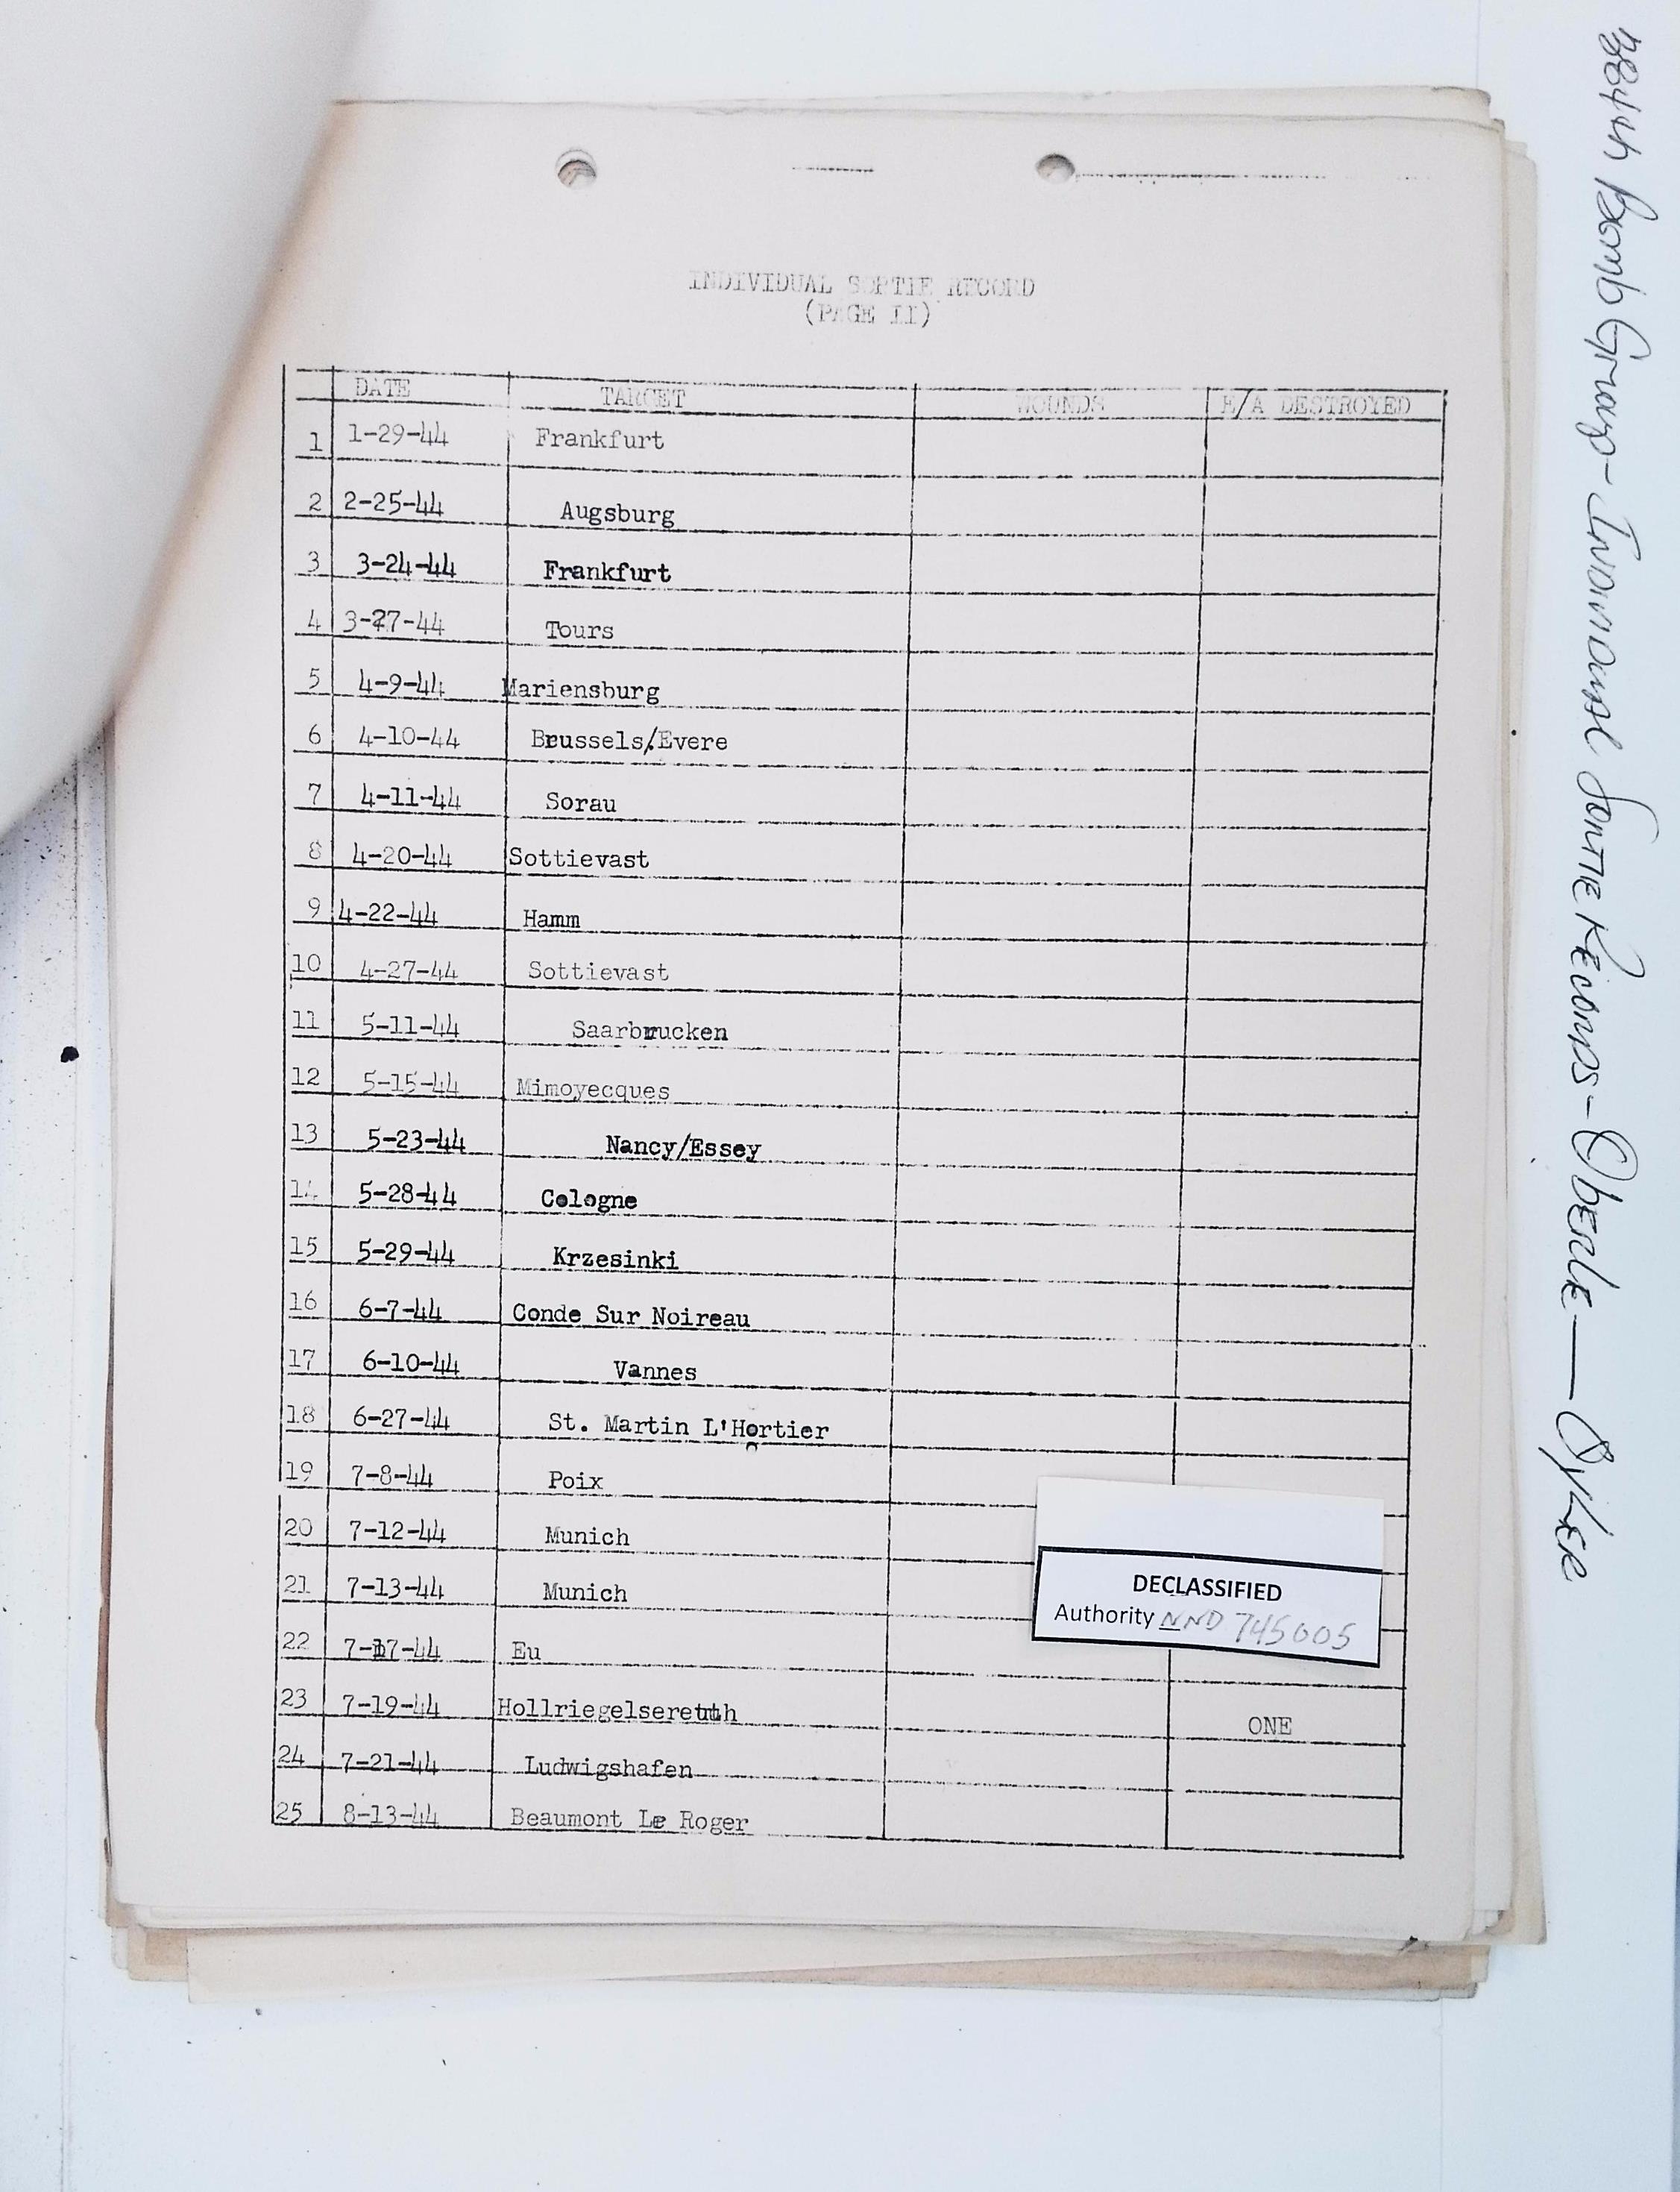 INDIVIDUAL SORTIE RECORD
(PAGE II)
DATE TARGET WOUNDS E/A DESTROYED
1 1-29-44 Frankfurt
2 2-25-44 Augsburg
3 3-24-44 Frankfurt
4 3-27-44 Tours
5 4-9-44 Mariensburg
6 4-10-44 Brussels/Evere
7 4-11-44 Sorau
8 4-20-44 Sottievast
9 4-22-44 Hamm
10 4-27-44 Sottievast
11 5-11-44 Saarbrucken
12 5-15-44 Mimoyecques
13 5-23-44 Nancy/Essey
14 5-28-44 Cologne
15 5-29-44 Krzesinki
16 6-7-44 Conde Sur Noireau
17 6-10-44 Vannes
18 6-27-44 St. Martin L'Hortier
19 7-8-44 Poix
20 7-12-44 Munich
21 7-13-44 Munich
22 7-17-44 Eu
23 7-19-44 Hollriegelsereuth ONE
24 7-21-44 Ludwigshafen
25 8-13-44 Beaumont Le Roger
DECLASSIFIED
Authority NND 745005
384th Bomb Group - Individual Sortie Records - Oberle — Oyler